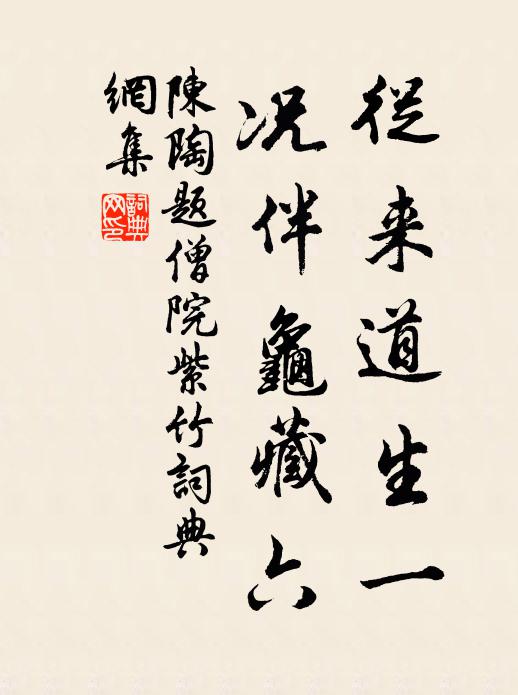 從来道生一
况伴龜藏六
陳陶題僧院紫竹詞典
網集
詞典
网印